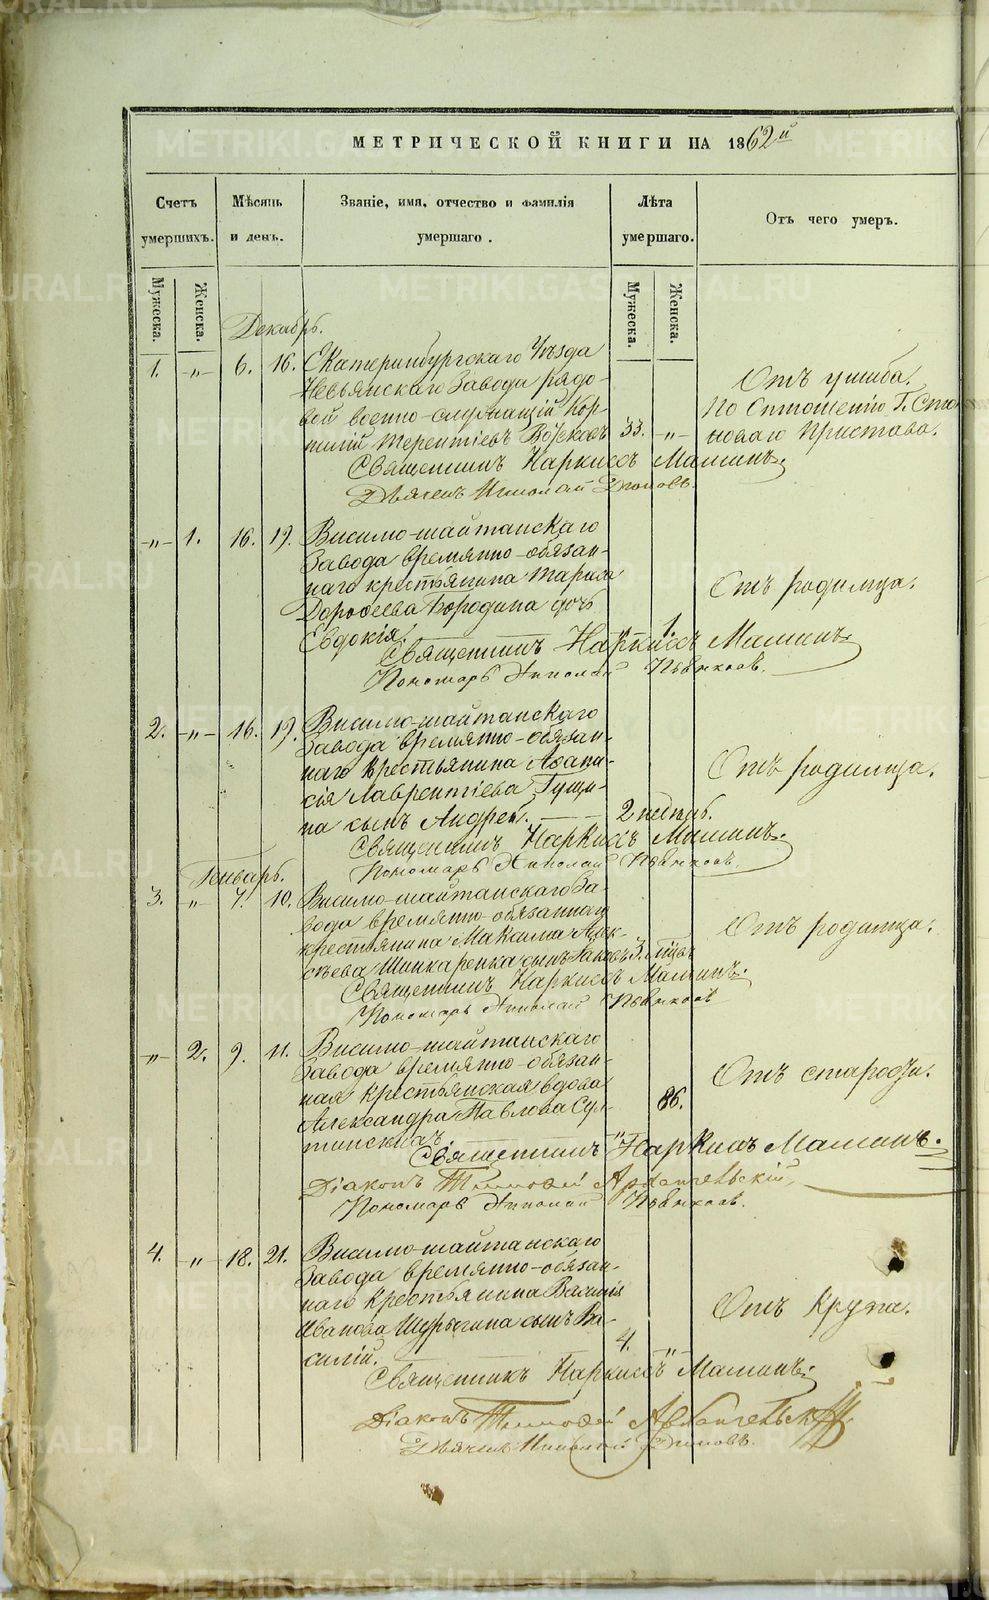 МЕТРИЧЕСКОЙ КНИГИ НА 1862й
Счетъ умершихъ.
Мѣсяць и день.
Званіе, имя, отчество и фамилія умершаго.
Лѣта умершаго.
Отъ чего умеръ.
Мужеска.
Женска.
Мужеска.
Женска.
Декабрь.
1. -„- 6. 16. Екатеринбургскаго Уѣзда
Невьянскаго Завода рядо-
вой военно-служащій Кор-
нилій Терентіевъ 33. -„-
Отъ ушиба.
По Отношенію Г. Ста
новаго Пристава.
Священникъ Наркиссъ Маминъ.
Дьячекъ Николай
-„- 1. 16. 19. Висимо-шайтанскаго
Завода временно-обязан-
наго крестьянина
Дороѳеева Бородина дочь
Евдокія. 1.
Отъ родимца.
Священникъ Наркиссъ Маминъ.
Пономарь Николай
2. -„- 16. 19. Висимо-шайтанскаго
Завода временно-обязан-
наго Крестьянина Аѳана-
сія Лаврентіева Гущи-
на сынъ Андрей. 2 недѣль.
Отъ родимца.
Священникъ Наркиссъ Маминъ.
Пономарь Николай
Генварь.
3. „ 7. 10. Висимо-шайтанскаго За-
вода временно-обязаннаго
крестьянина Максима Алек-
сѣева Шинкаренка сынъ Яковъ 3. мѣсц
Отъ родимца.
Священникъ Наркиссъ Маминъ.
Пономарь Николай
-„- 2. 9. 11. Висимо-шайтанскаго
Завода временно-обязан-
ная Крестьянская вдова
Александра Павлова Сул-
86.
Отъ старости.
Священникъ Наркиссъ Маминъ.
Діаконъ Тимоѳей Архангельскій,
Пономарь Николай
4. -„- 18. 21. Висимо-шайтанскаго
Завода временно-обязан-
наго Крестьянина Василія
Иванова Шурыгина сынъ Ва-
силій. 4. „
Отъ Крупа.
Священникъ Наркиссъ Маминъ.
Діаконъ Тимоѳей Архангельскій
Дьячекъ Николай
METRIKI.GASO-URAL.RU